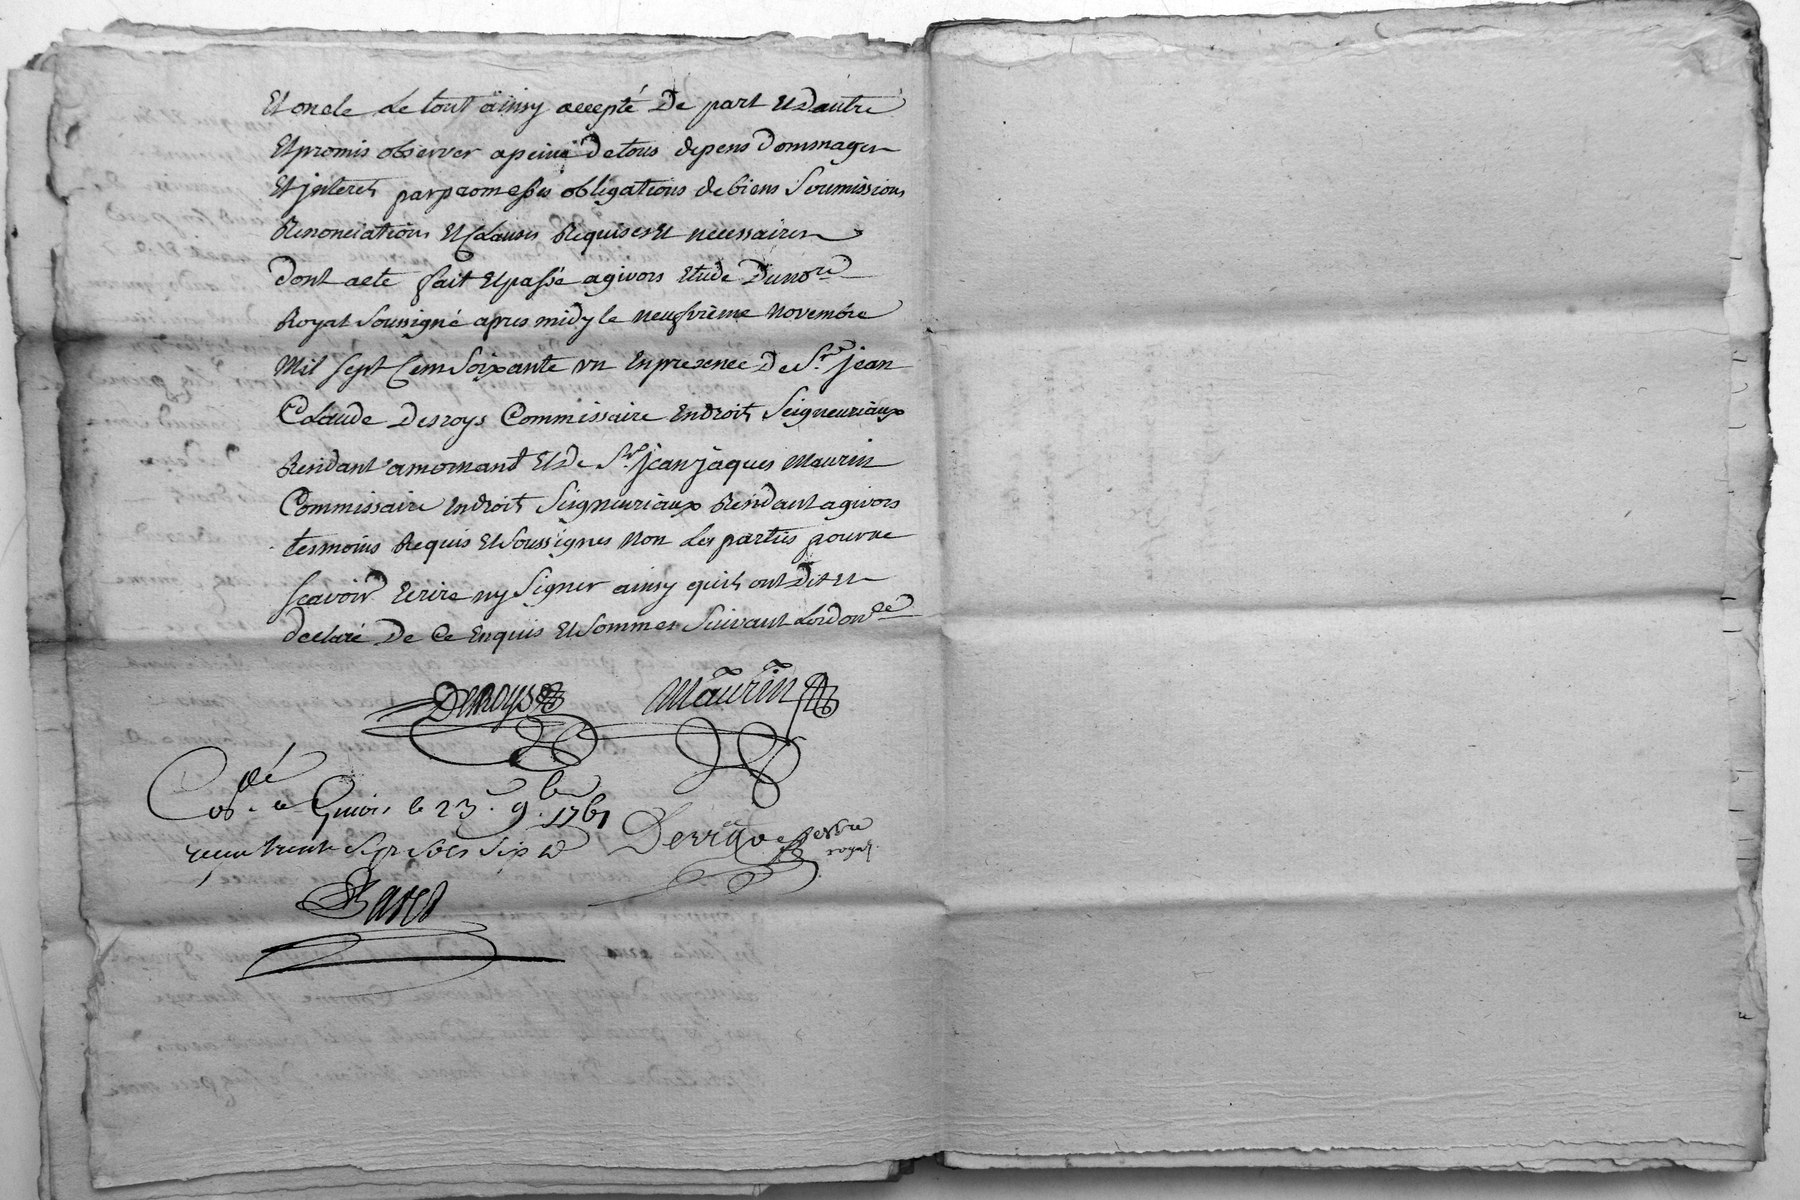 Et oncle Le tout ainsy accepté De part Et Dautre
Et promis observer a peine De tous depens Dommages
Et jnterets par promesses obligations de biens Soumissions
Renonciations Et Clauses Requises Et necessaires
Dont acte fait Et passé a givors Etude Du no.re
Royal Soussigné apres midy le neufvieme novembre
Mil Sept Cent Soixante un En presence De S.r jean
Claude Desroys Commissaire En droits Seigneuriaux
Residant a mornant Et De S.r jean jaques Maurin
Commissaire En droits Seigneuriaux Residant a givors
temoins Requis Et Soussignes Non Les parties pour ne
scavoir Ecrire ny Signer ainsy quils ont Dit Et
declaré De Ce Enquis Et Sommes Suivant Lordon.ce
Desroys Maurin
Co.lé a Givors le 23. 9.bre 1761
reçu trente Sept sols Six d
Derrique no.re royal